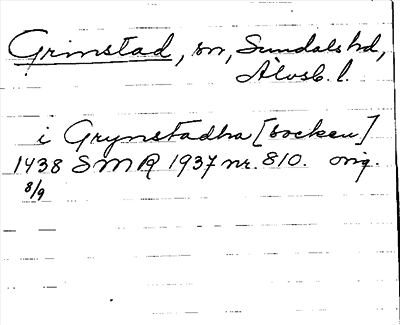 Grimstad, sn, Sundals hd,
Älvsb. l.
i Grynstadha [socken]
1438 SMR 1937 nr. 810. orig.
8/9